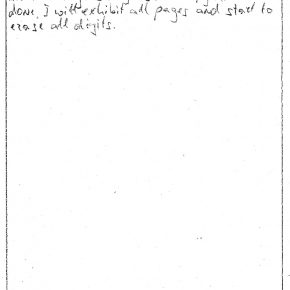 done, I will exhibit all pages and start to
erase all digits.